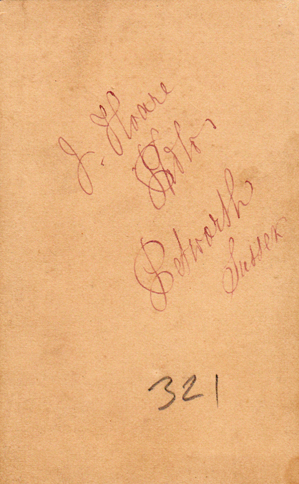 J. Hoare
Petworth
Sussex
321